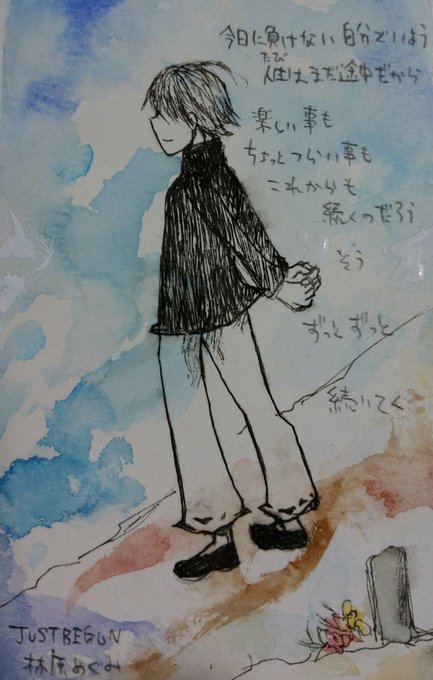 今日に負けない自分でいよう
たび
人生はまだ途中だから
楽しい事も
ちょっとつらい事も
これからも
続くのだろう
そう
ずっとずっと
続いてく
JUST BEGUN
林原めぐみ